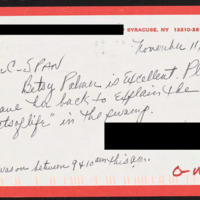 SYRACUSE, NY 13210-28
November 11,
C-SPAN
Betsy Palmer is excellent. Pl
have her back to explain the
"
of life" in the swamp.
was on between 9 & 10 am this a.m.